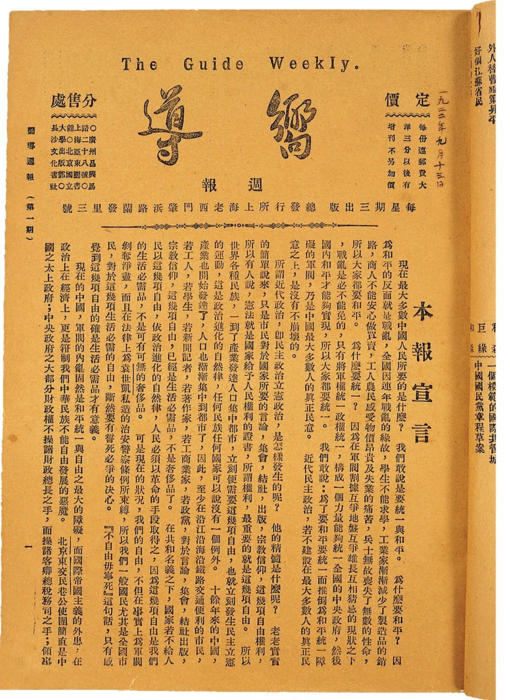 The Guide Weekly.
分售處
定價
嚮導
週報
每份連郵費大
洋三分以後有
增刊不另加價
一九二二年九月十三日
長沙文化書社
每星期三出版 總發行所上海老西門肇浜路蘭發里三號
嚮導週報 (第一期)
本報宣言
現在最大多數中國人民所要的是什麼? 我們敢說是要統一與和平。 為什麼要和平? 因
為和平的反面就是戰亂,全國因連年戰亂的緣故,學生不能求學,工業家漸漸減少了製造品的銷
路,商人不能安心做買賣,工人農民感受物價昂貴及失業的痛苦,兵士無故喪失了無數的性命,
所以大家都要和平。 為什麼要統一? 因為在軍閥割據互爭地盤互爭雄長互相猜忌的現狀之下
,戰亂是必不能免的,只有將軍權統一,政權統一,構成一個力量能夠統一全國的中央政府,然後
國內和平才能實現,所以大家都要統一。 我們敢說:為了要和平要統一而推倒為和平統一障
礙的軍閥,乃是中國最大多數人的真正民意。 近代民主政治,若不建設在最大多數人的真正民
意之上,是沒有不崩壞的。
所謂近代政治,即民主政治立憲政治,是怎樣發生的呢? 他的精髓是什麼呢? 老老實實
的簡單說來,只是市民對於國家所要的言論,集會,結社,出版,宗教信仰,這幾項自由權利,
所以有人說,憲法就是國家給予人民權利的證書,所謂權利,最重要的就是這幾項自由。 所以
世界各種民族,一到了產業發達人口集中都市,立刻便需要這幾項自由,也就立刻發生民主立憲
的運動,這是政治進化的自然律,任何民族任何國家可以說沒有一個例外。 十餘年來的中國,
產業也開始發達了,人口也漸漸集中到都市了,因此,至少在沿江沿海沿鐵路交通便利的市民,
若工人,若學生,若新聞記者,若著作家,若工商業家,若政黨,對於言論,集會,結社,出版,
宗教信仰,這幾項自由,已經是生活必需品,不是奢侈品了。 在共和名義之下,國家若不給人
民以這幾項自由,依政治進化的自然律,人民必須以革命的手段取得之,因為這幾項自由是我們
的生活必需品,不是可有可無的奢侈品。 可是現在的狀況,我們的自由,不但在事實上為軍閥
剝奪淨盡,而且在法律上為袁世凱私造的治安警察條例所束縛,所以我們一般國民尤其是全國市
民,對於這幾項生活必需的自由,斷然要有誓死必爭的決心。 『不自由毋寧死』這句話,只有感
覺到這幾項自由的確是生活必需品才有意義。
現在的中國,軍閥的內亂固然是和平統一與自由之最大的障礙,而國際帝國主義的外患,在
政治上在經濟上,更是箝制我們中華民族不能自由發展的惡魔。 北京東交民巷公使團簡直是中
國之太上政府;中央政府之大部分財政權不操諸財政總長之手,而操諸客卿總稅務司之手;領事
1
中國國民黨章程草案